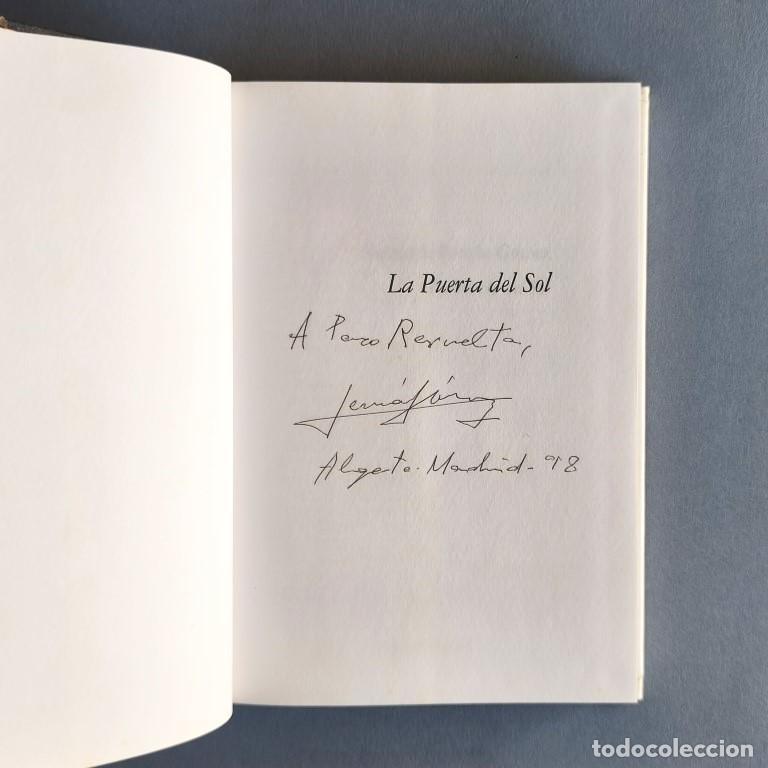 La Puerta del Sol
A Paco Revuelta,
Madrid - 98
todocoleccion